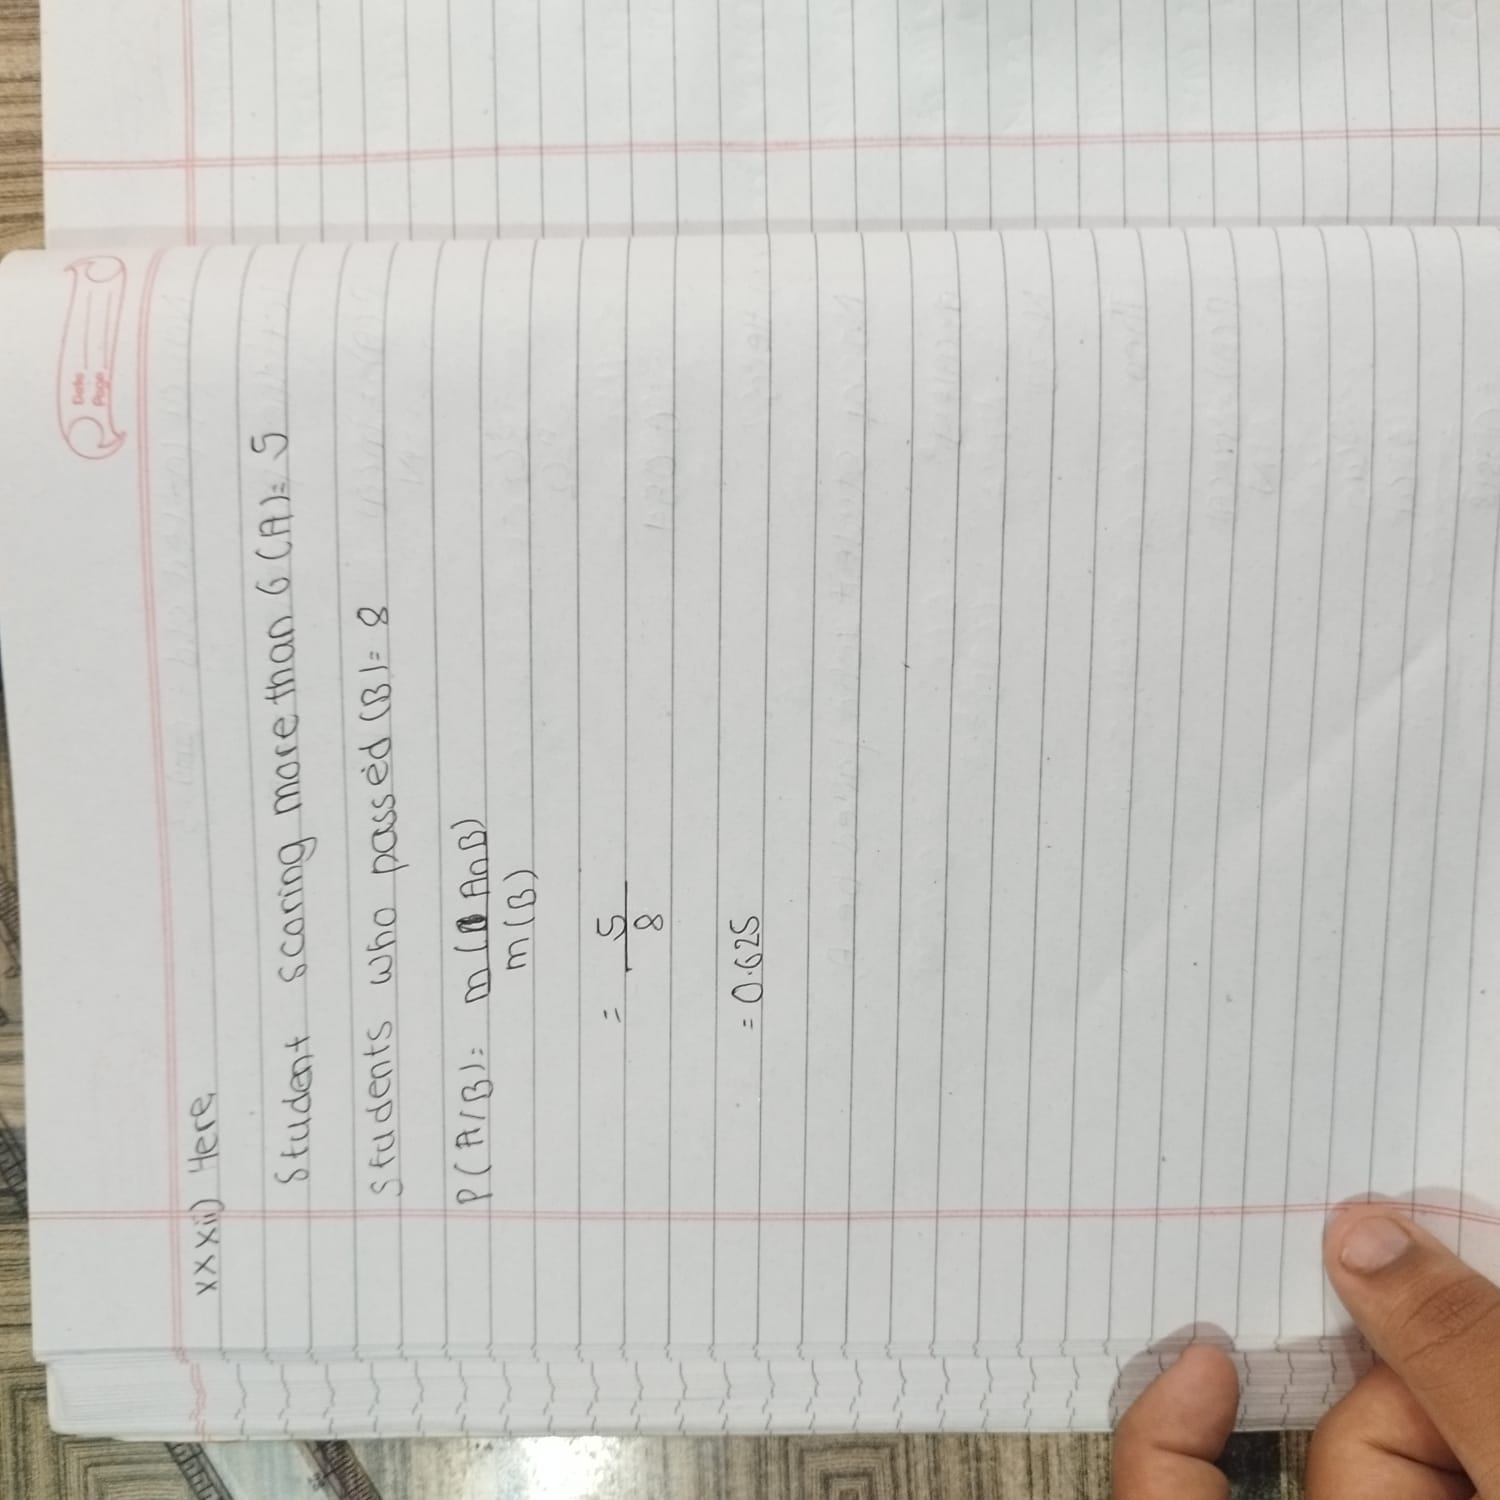 Date
Page
xxxii) Here,
Student scoring more than 6 (A) = 5
Students who passed (B) = 8
P(A/B) = m(A∩B)
m(B)
= 5
8
= 0.625